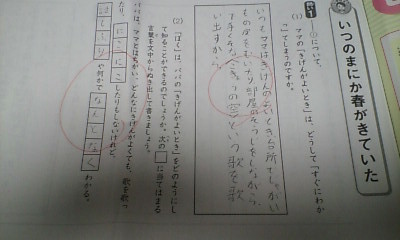 いつのまにか春がきていた
1
(1) ――①について、
ママの「きげんがよいとき」は、どうして「すぐにわかってしまうのですか。
いつもママはきげんのよいとき、台所でしずかい
ものをあらい、部屋のそうじをしながら、
て
い出すから。
(2) 「ぼく」は、パパの「きげんがよいとき」をどのようにし
て知ることができるのでしょうか。次の□に当てはまる
言葉を文中からぬき出して書きましょう。
パパは、ママとはちがい、どんなにきげんがよくても、歌を歌っ
たり、にこにこしたりもしないけれど、
や何かでなんとなくわかる。